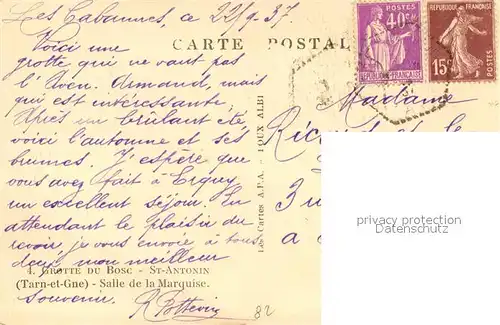 Les Cabannes, ce 22/9-37.
CARTE POSTAL
Voici une
grotte qui ne vaut pas
l'Aven Armand, mais
qui est intéressante.
Après un brûlant été
voici l'automne et ses
brumes. J'espère que
vous avez fait à Erquy
un excellent séjour. En
attendant le plaisir du
revoir, je vous envoie à tous
deux mon meilleur
4. GROTTE DU BOSC - ST-ANTONIN
(Tarn-et-Gne) - Salle de la Marquise.
souvenir.
82
Les Cartes A.P.A. - POUX ALBI
POSTES 40c
RÉPUBLIQUE FRANÇAISE
RÉPUBLIQUE FRANÇAISE
15c POSTES
Madame
privacy protection
Datenschutz